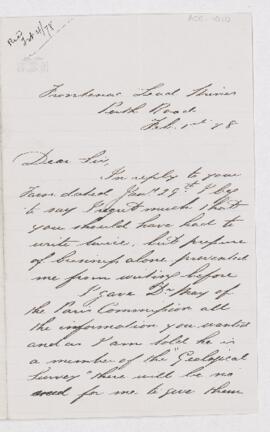 Recd
Feb 4/78
Frontenac Lead Mines
Perth Road
Feb. 1st 78
Dear Sir,
In reply to your
favr dated Jany 29th I beg
to say I regret much that
you should have had to
write twice, but pressure
of business alone prevented
me from writing before
I gave Dr May of
the Paris Commission all
the information you wanted
and as I am told he is
a member of the "Geological
Survey" there will be no
need for me to give them